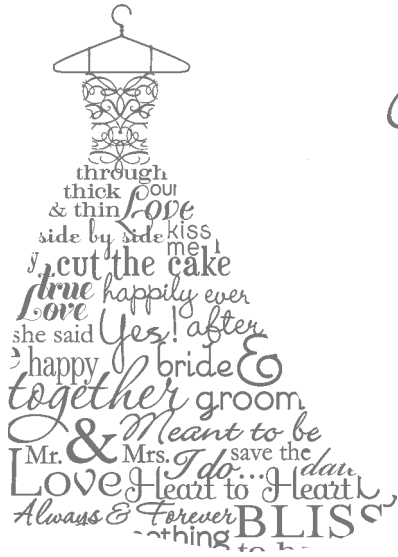 through
thick our
& thin Love
side by side kiss
me
cut the cake
true happily ever
Love
she said Yes! after
happy bride &
together groom
Mr. & Mrs. Meant to be
I do... save the
Love Heart to Heart
Always & Forever BLISS